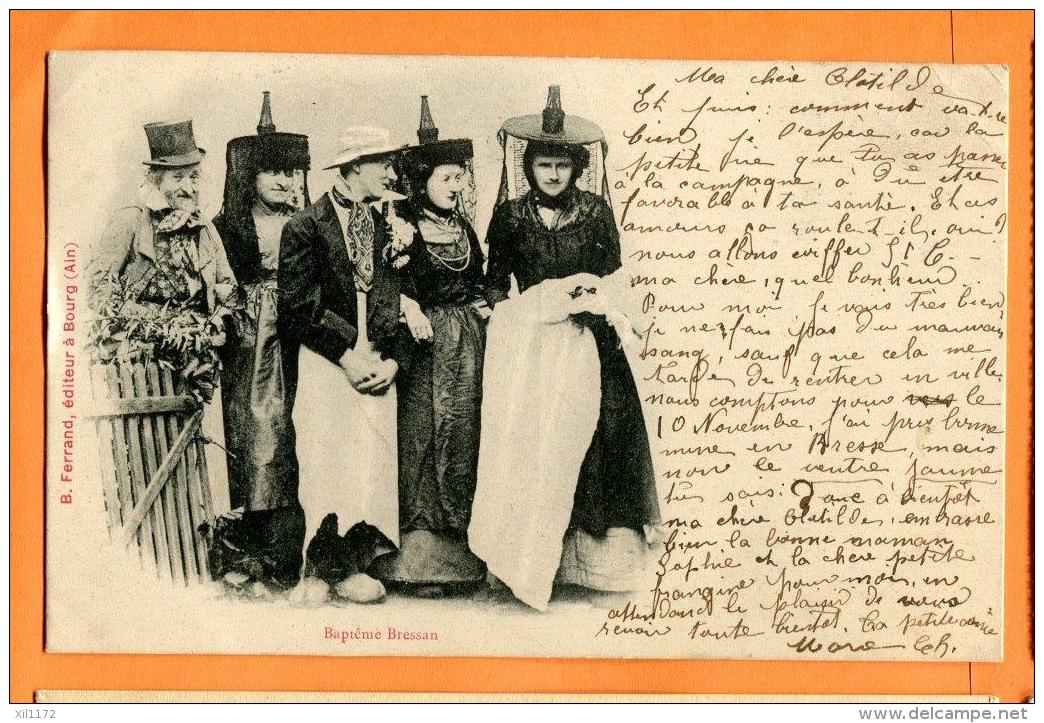 Ma chère Clotilde
Et puis: comment va-t-re
bien je l'espère, car la
petite vie que tu as passée
à la campagne, à dû être
favorable à ta santé. Et ces
amours ça roule-t-il, oui?
nous allons coiffer St C. –
ma chère, quel bonheur.
Pour moi je vais très bien
je ne fais pas du mauvais
sang, sauf que cela me
tarde de rentrer en ville.
nous comptons pour le
10 Novembre, j'ai pris bonne
mine en Bresse, mais
non le ventre jaune
tu sais: Donc à bientôt
ma chère Clotilde, embrasse
bien la bonne maman
Sophie et la chère petite
frangine pour moi, en
attendant le plaisir de vous
revoir toute bientôt. Ta petite amie
Ch.
B. Ferrand, éditeur à Bourg (Ain)
Baptême Bressan
xil1172
www.delcampe.net